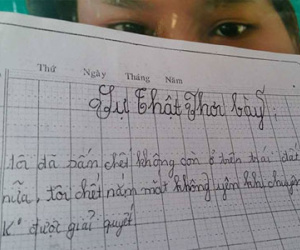 Thứ Ngày Tháng Năm
Sự thật Phơi bày
tôi đã chết không còn ở trên trái đất
nữa, tôi chết nắm mắt không yên khi chuyện
K° được giải quyết